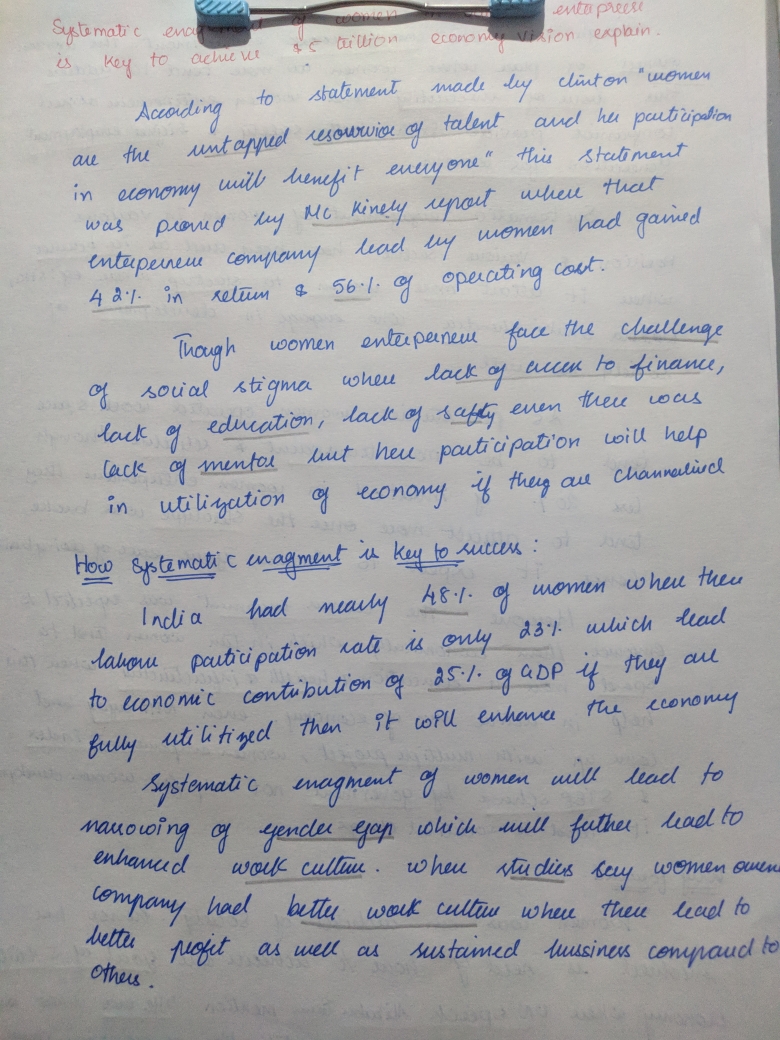 Systematic enagment of women in enteprere
is key to achieve $5 trillion economy vision explain.
According to statement made by clinton "women
are the untapped resourvice of talent and her participation
in economy will benefit everyone" this statement
was proved by Mc kinely report where that
entepereneur company lead by women had gained
42% in return & 56% of operating cost.
Though women entereperneur face the challenge
of social stigma where lack of access to finance,
lack of education, lack of safty even there was
lack of mentor but here participation will help
in utilization of economy if they are channelised
How systematic enagment is key to success:
India had nearly 48% of women where there
labour participation rate is only 23% which lead
to economic contribution of 25% of GDP if they are
fully utilitized then it will enhance the economy
Systematic enagment of women will lead to
narrowing of gender gap which will futher lead to
enhanced work culture. where studies say women owen
company had better work culture where there lead to
better profit as well as sustained bussiness compraud to
others.